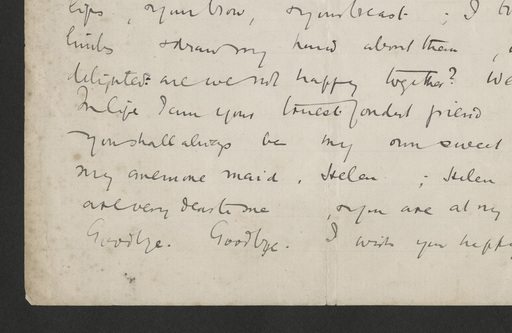 lips, & your brow, & your breast; I
limbs & draw my hand about them,
delighted: are we not happy together? We
In life I am your truest fondest friend
you shall always be my own sweet
my anemone maid, Helen; Helen
are very dear to me, & you are at my
Goodbye. Goodbye. I wish you happy